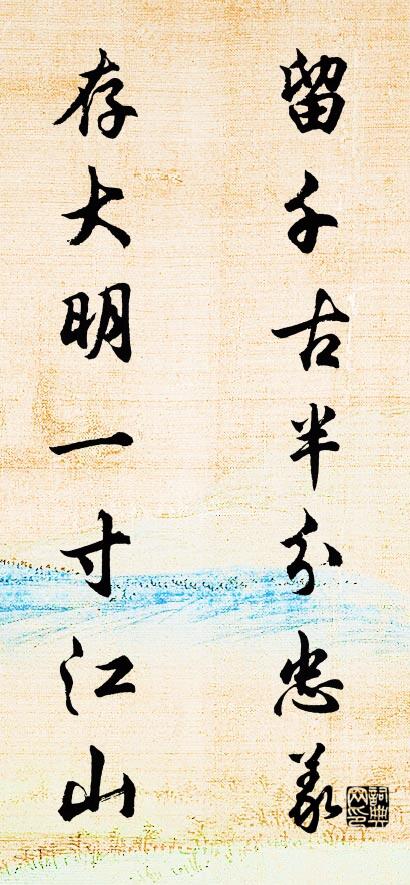 留千古半分忠義
存大明一寸江山
詞典網印